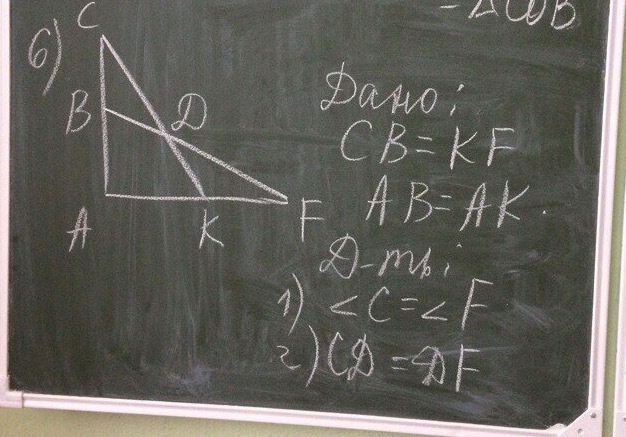 = ΔCDB
6)
C
B
D
A
K
F
Дано:
CB = KF
AB = AK.
Д-ть:
1) <C = <F
2) CD = DF